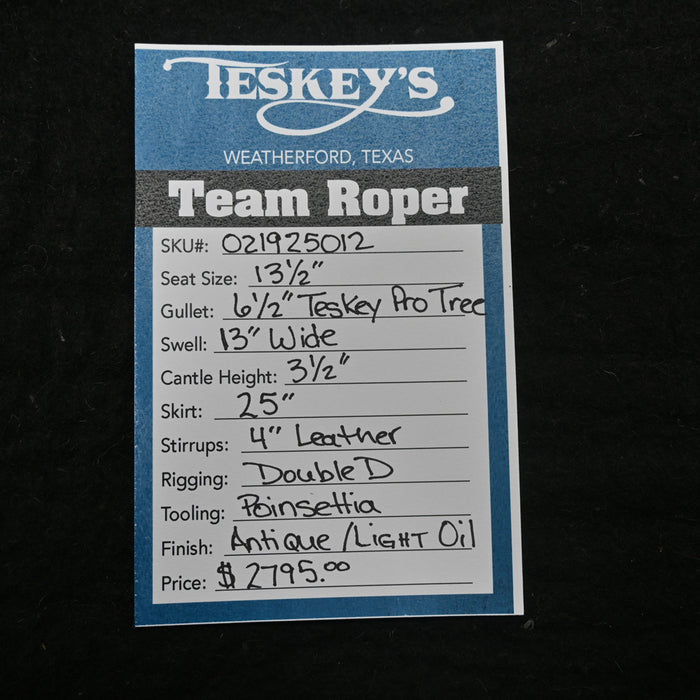 TESKEY'S
WEATHERFORD, TEXAS
Team Roper
SKU#: 021925012
Seat Size: 13 1/2"
Gullet: 6 1/2" Teskey Pro Tree
Swell: 13" Wide
Cantle Height: 3 1/2"
Skirt: 25"
Stirrups: 4" Leather
Rigging: Double D
Tooling: Poinsettia
Finish: Antique / LIGHT Oil
Price: $ 2795.00